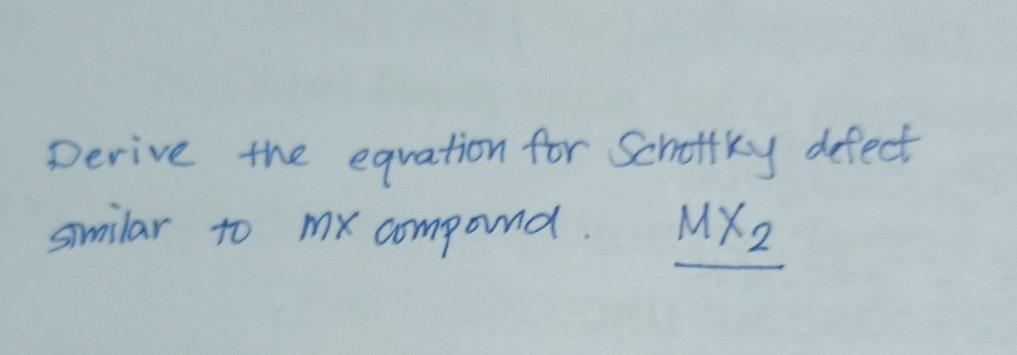 Derive the equation for Schottky defect
similar to MX compound. MX2